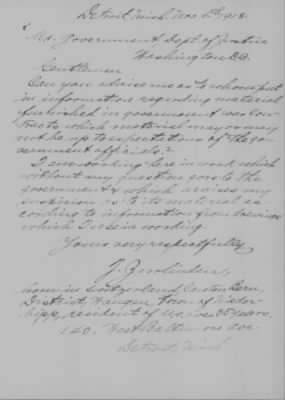 Detroit, Mich. Nov. 1918.
U.S. Government Dept. of Justice
Washington D.C.
Gentlemen
Can you advise me as to whom to put
in information regarding material
furnished in government war con-
tracts which material may or may
not be up to expectations of the gov-
ernment officials?
I am working here in work which
without any question goes to the
government & which arises my
suspicion as to its material ac-
cording to information from
which I use in working.
Yours very respectfully,
J.
born in Switzerland, Canton Bern,
District Wangen, town of
bipp, resident of U.S. 35 years.
140. West Baltimore ave.
Detroit, Mich